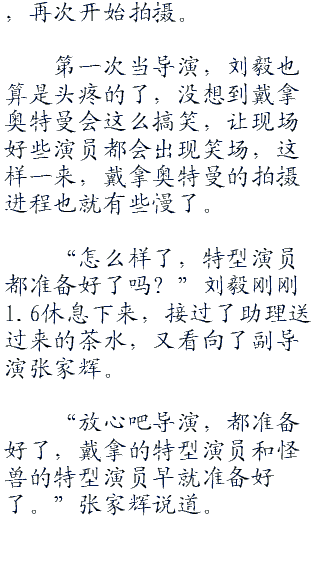 ，再次开始拍摄。
第一次当导演，刘毅也
算是头疼的了，没想到戴拿
奥特曼会这么搞笑，让现场
好些演员都会出现笑场，这
样一来，戴拿奥特曼的拍摄
进程也就有些慢了。
“怎么样了，特型演员
都准备好了吗？”刘毅刚刚
1.6休息下来，接过了助理送
过来的茶水，又看向了副导
演张家辉。
“放心吧导演，都准备
好了，戴拿的特型演员和怪
兽的特型演员早就准备好
了。”张家辉说道。